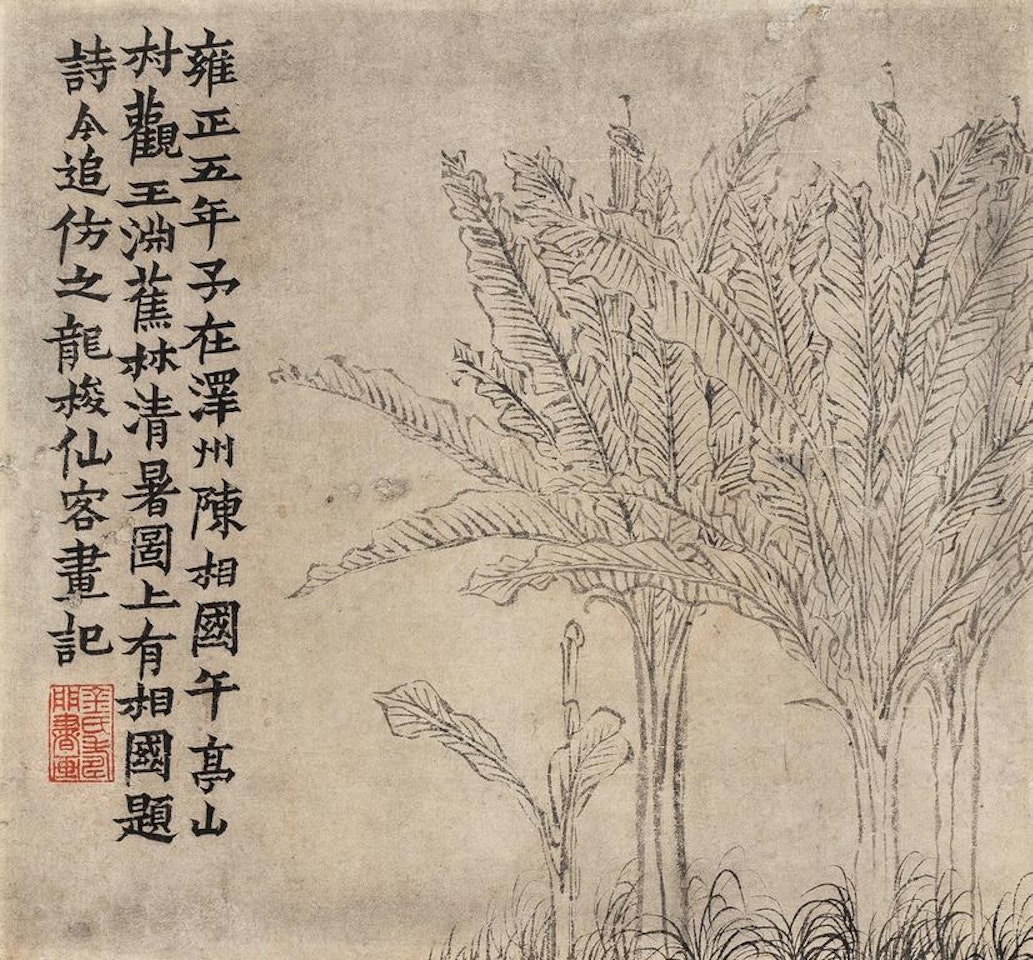 雍正五年予在澤州陳相國午亭山
村觀王淵蕉林清暑圖上有相國題
詩今追仿之龍梭仙客畫記
金氏壽
門書畫